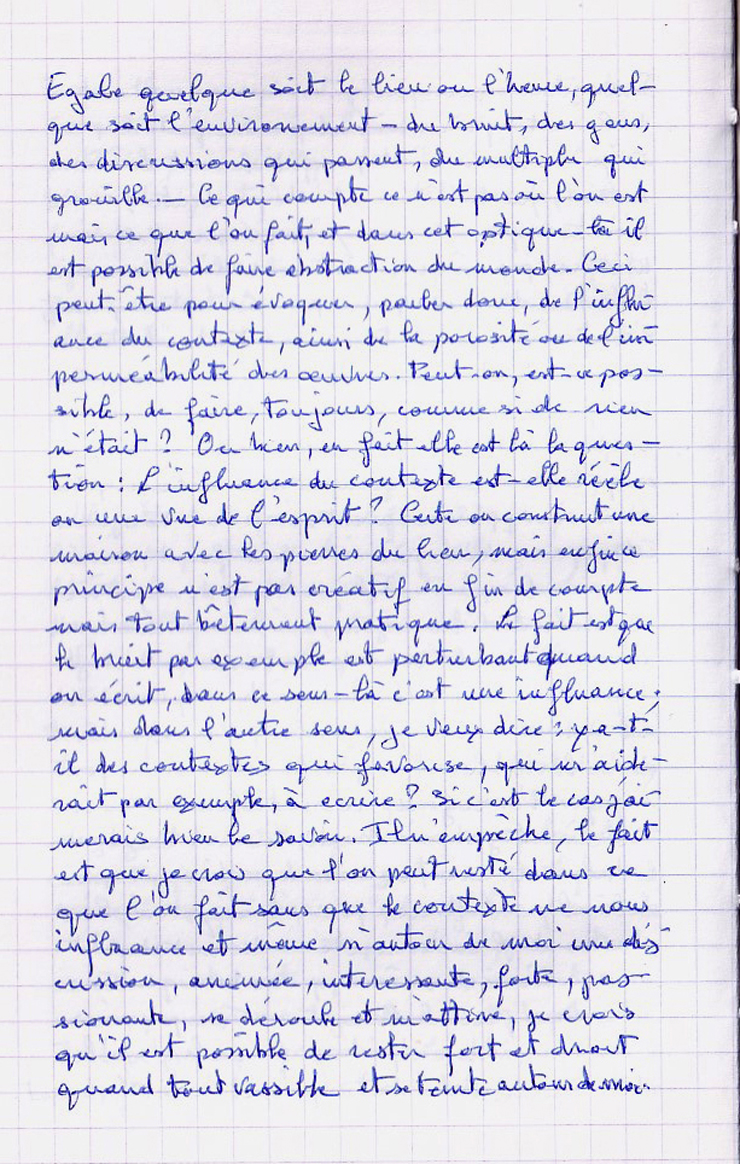 Egale quelque soit le lieu ou l'heure, quel-
que soit l'environement – du bruit, des gens,
des discussions qui passent, du multiple qui
grouille. – Ce qui compte ce n'est pas où l'on est
mais ce que l'on fait, et dans cet optique-là il
est possible de faire abstraction du monde. Ceci
peut-être pour évoquer, parler donc, de l'influ-
ance du contexte, ainsi de la porosité ou de l'im
perméabilité des œuvres. Peut-on, est-ce pos-
sible, de faire, toujours, comme si de rien
n'était ? Ou bien, en fait elle est là la ques-
tion : L'influance du contexte est-elle réèle
ou une vue de l'esprit ? Certe on construit une
maison avec les pierres du lieu, mais enfin ce
principe n'est pas créatif en fin de compte
mais tout bêtement pratique. Le fait est que
le bruit par exemple est perturbant quand
on écrit, dans ce sens-là c'est une influance ;
mais dans l'autre sens, je veux dire : y a-t-
il des contextes qui favorise, qui m'aide-
rait par exemple, à ecrire ? Si c'est le cas j'ai
merais bien le savoir. Il n'empèche, le fait
est que je crois que l'on peut resté dans ce
que l'on fait sans que le contexte ne nous
influance et même si autour de moi une dis
cussion, animée, interessante, forte, pas-
sionante, se déroule et m'attire, je crois
qu'il est possible de rester fort et droit
quand tout vassille et se autour de moi.